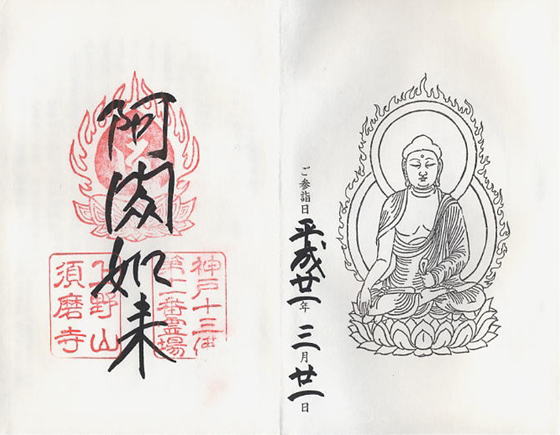 ご参詣日 平成廿一年 三月 廿一日
阿閦如来
神戸十三佛
番霊場
上野山
須磨寺